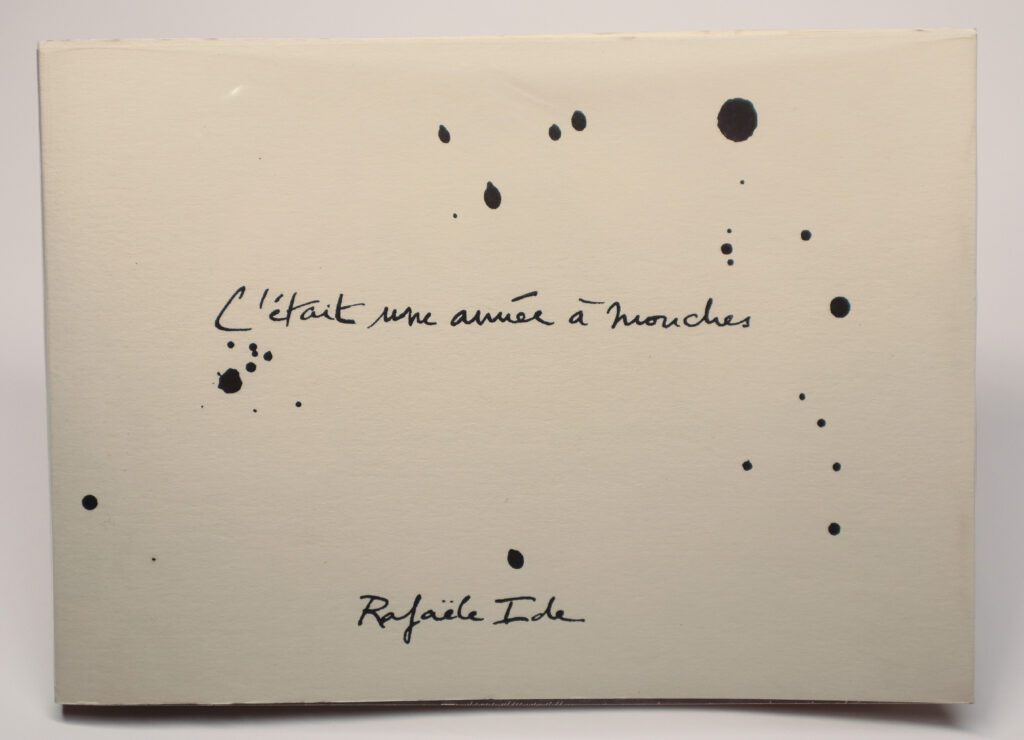 C'était une année à mouches
Rafaële Ide